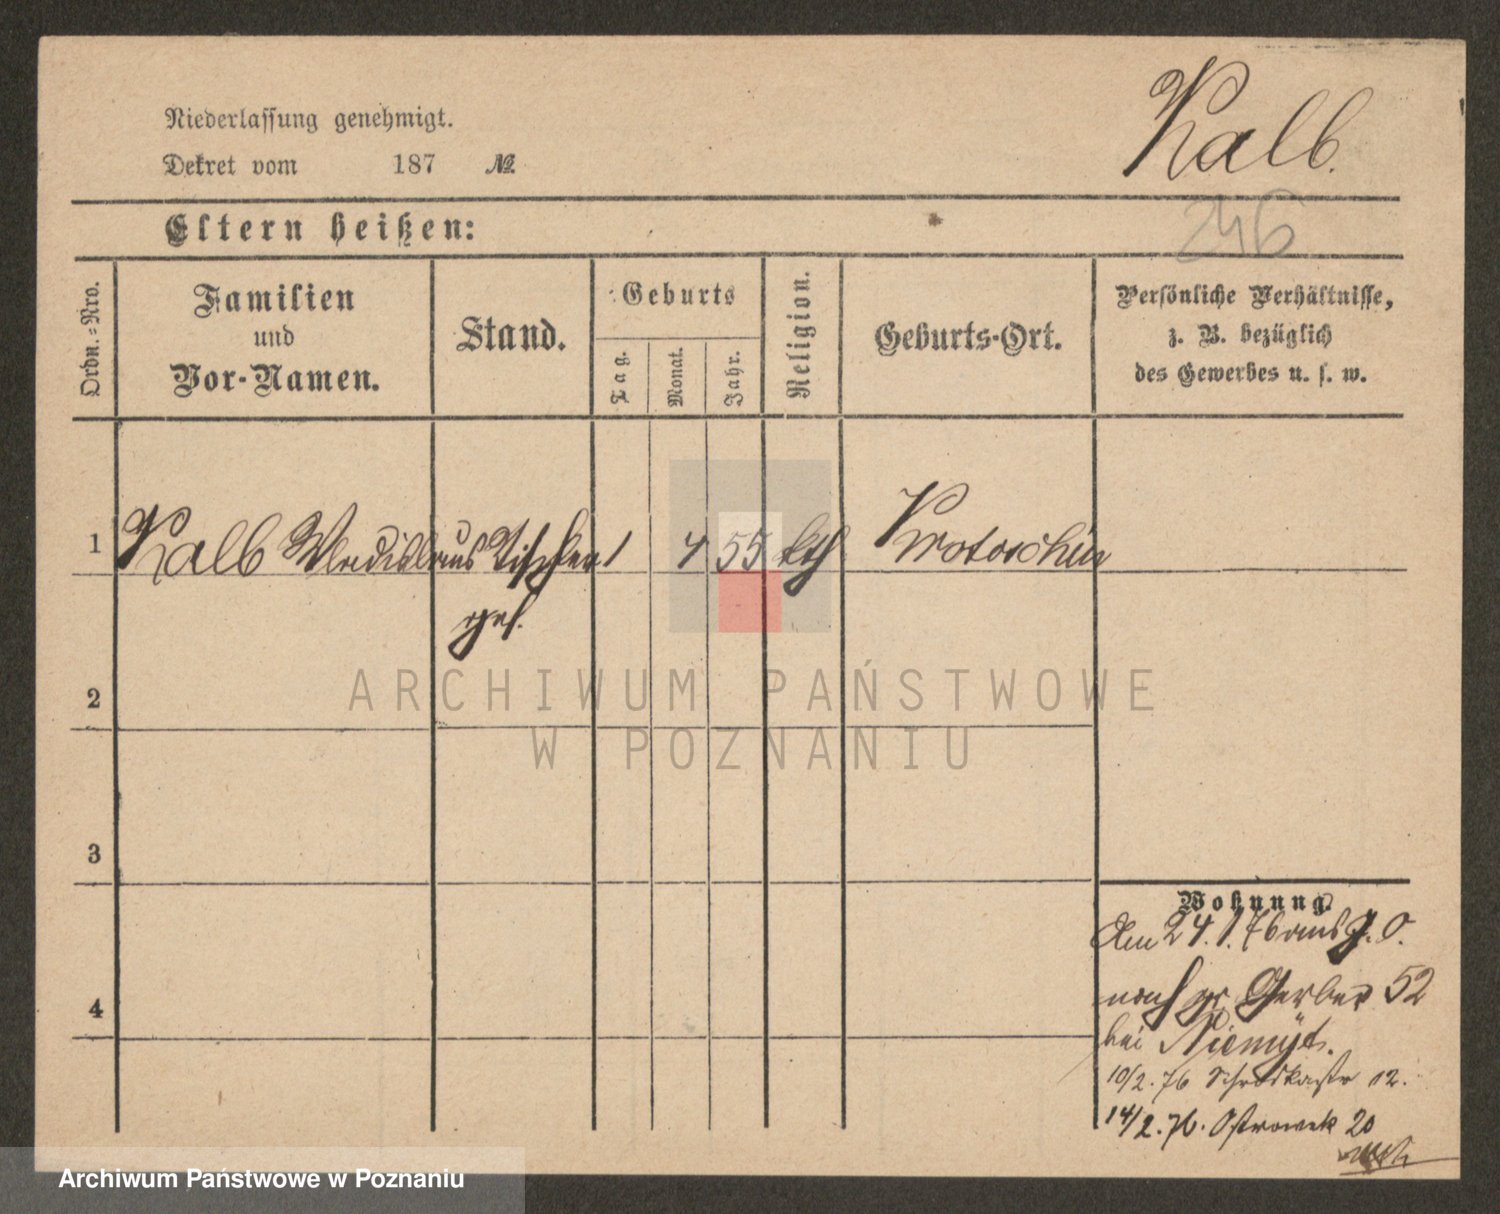 Niederlassung genehmigt.
Kalb.
Dekret vom 187 №
Eltern heißen:
246
Ordn.=Nro.
Familien
und
Vor-Namen.
Stand.
Geburts
Tag.
Monat.
Jahr.
Religion.
Geburts-Ort.
Persönliche Verhältnisse,
z. B. bezüglich
des Gewerbes u. s. w.
1 Kalb Wladislaus Tischler 1 4 55 kth Krotoschin
ges.
2
3
4
Wohnung.
Am 24.1.76 aus
nach gr Gerber 52
bei
10/2.76 Schrodkastr 12.
14/2.76. Ostrowek 20
ARCHIWUM PAŃSTWOWE
W POZNANIU
Archiwum Państwowe w Poznaniu